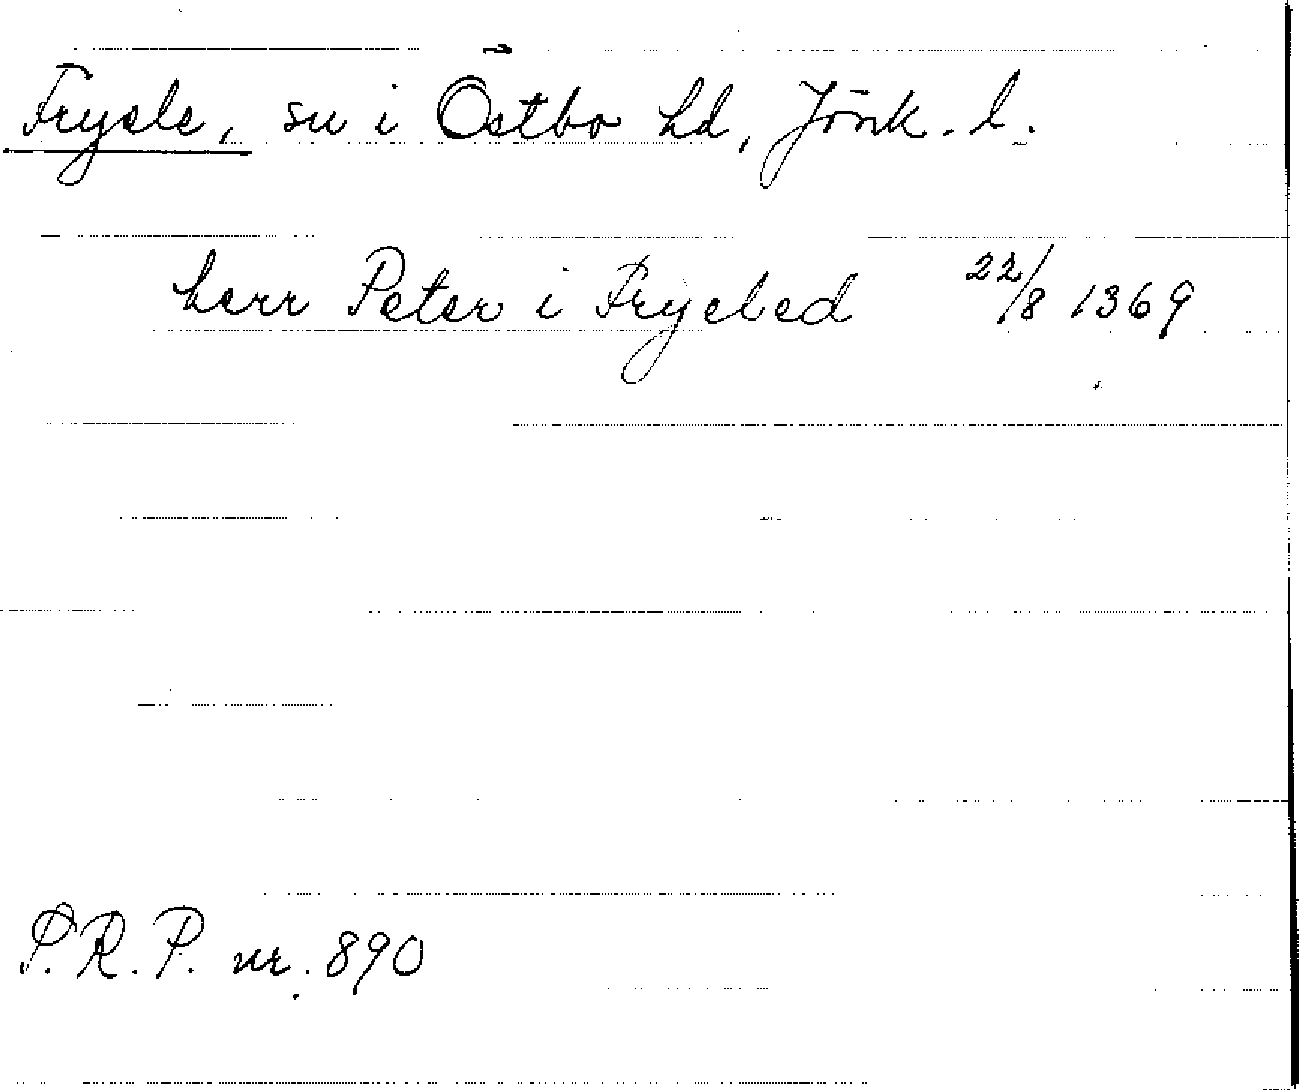 Fryele, sn i Östbo hd, Jönk. l.
herr Peter i Fryeled 22/8 1369
S.R.P. nr. 890